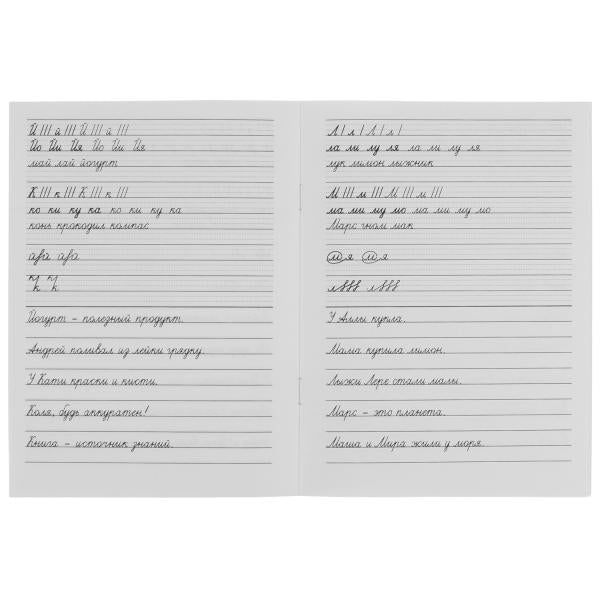 Й й Й й
Йо Йи Йя Йо Йи Йя
май лай йогурт
К к К к
ко ки ку ка ко ки ку ка
конь крокодил компас
Йогурт – полезный продукт.
Андрей поливал из лейки грядку.
У Кати краски и кисти.
Коля, будь аккуратен!
Книга – источник знаний.
Л л Л л
ла ли лу ля ла ли лу ля
лук лимон лыжник
М м М м
ма ми му мо ма ми му мо
Марс гном мак
У Аллы кукла.
Мама купила лимон.
Лыжи Лере стали малы.
Марс – это планета.
Маша и Мира жили у моря.